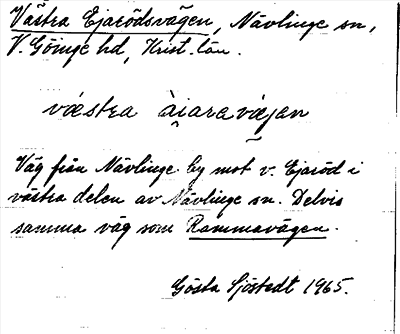 Västra Ejarödsvägen, Nävlinge sn,
V. Göinge hd, Krist. län.
västra àiaravägan
Väg från Nävlinge by mot v. Ejaröd i
västra delen av Nävlinge sn. Delvis
samma väg som Rammavägen.
Gösta Sjöstedt 1965.